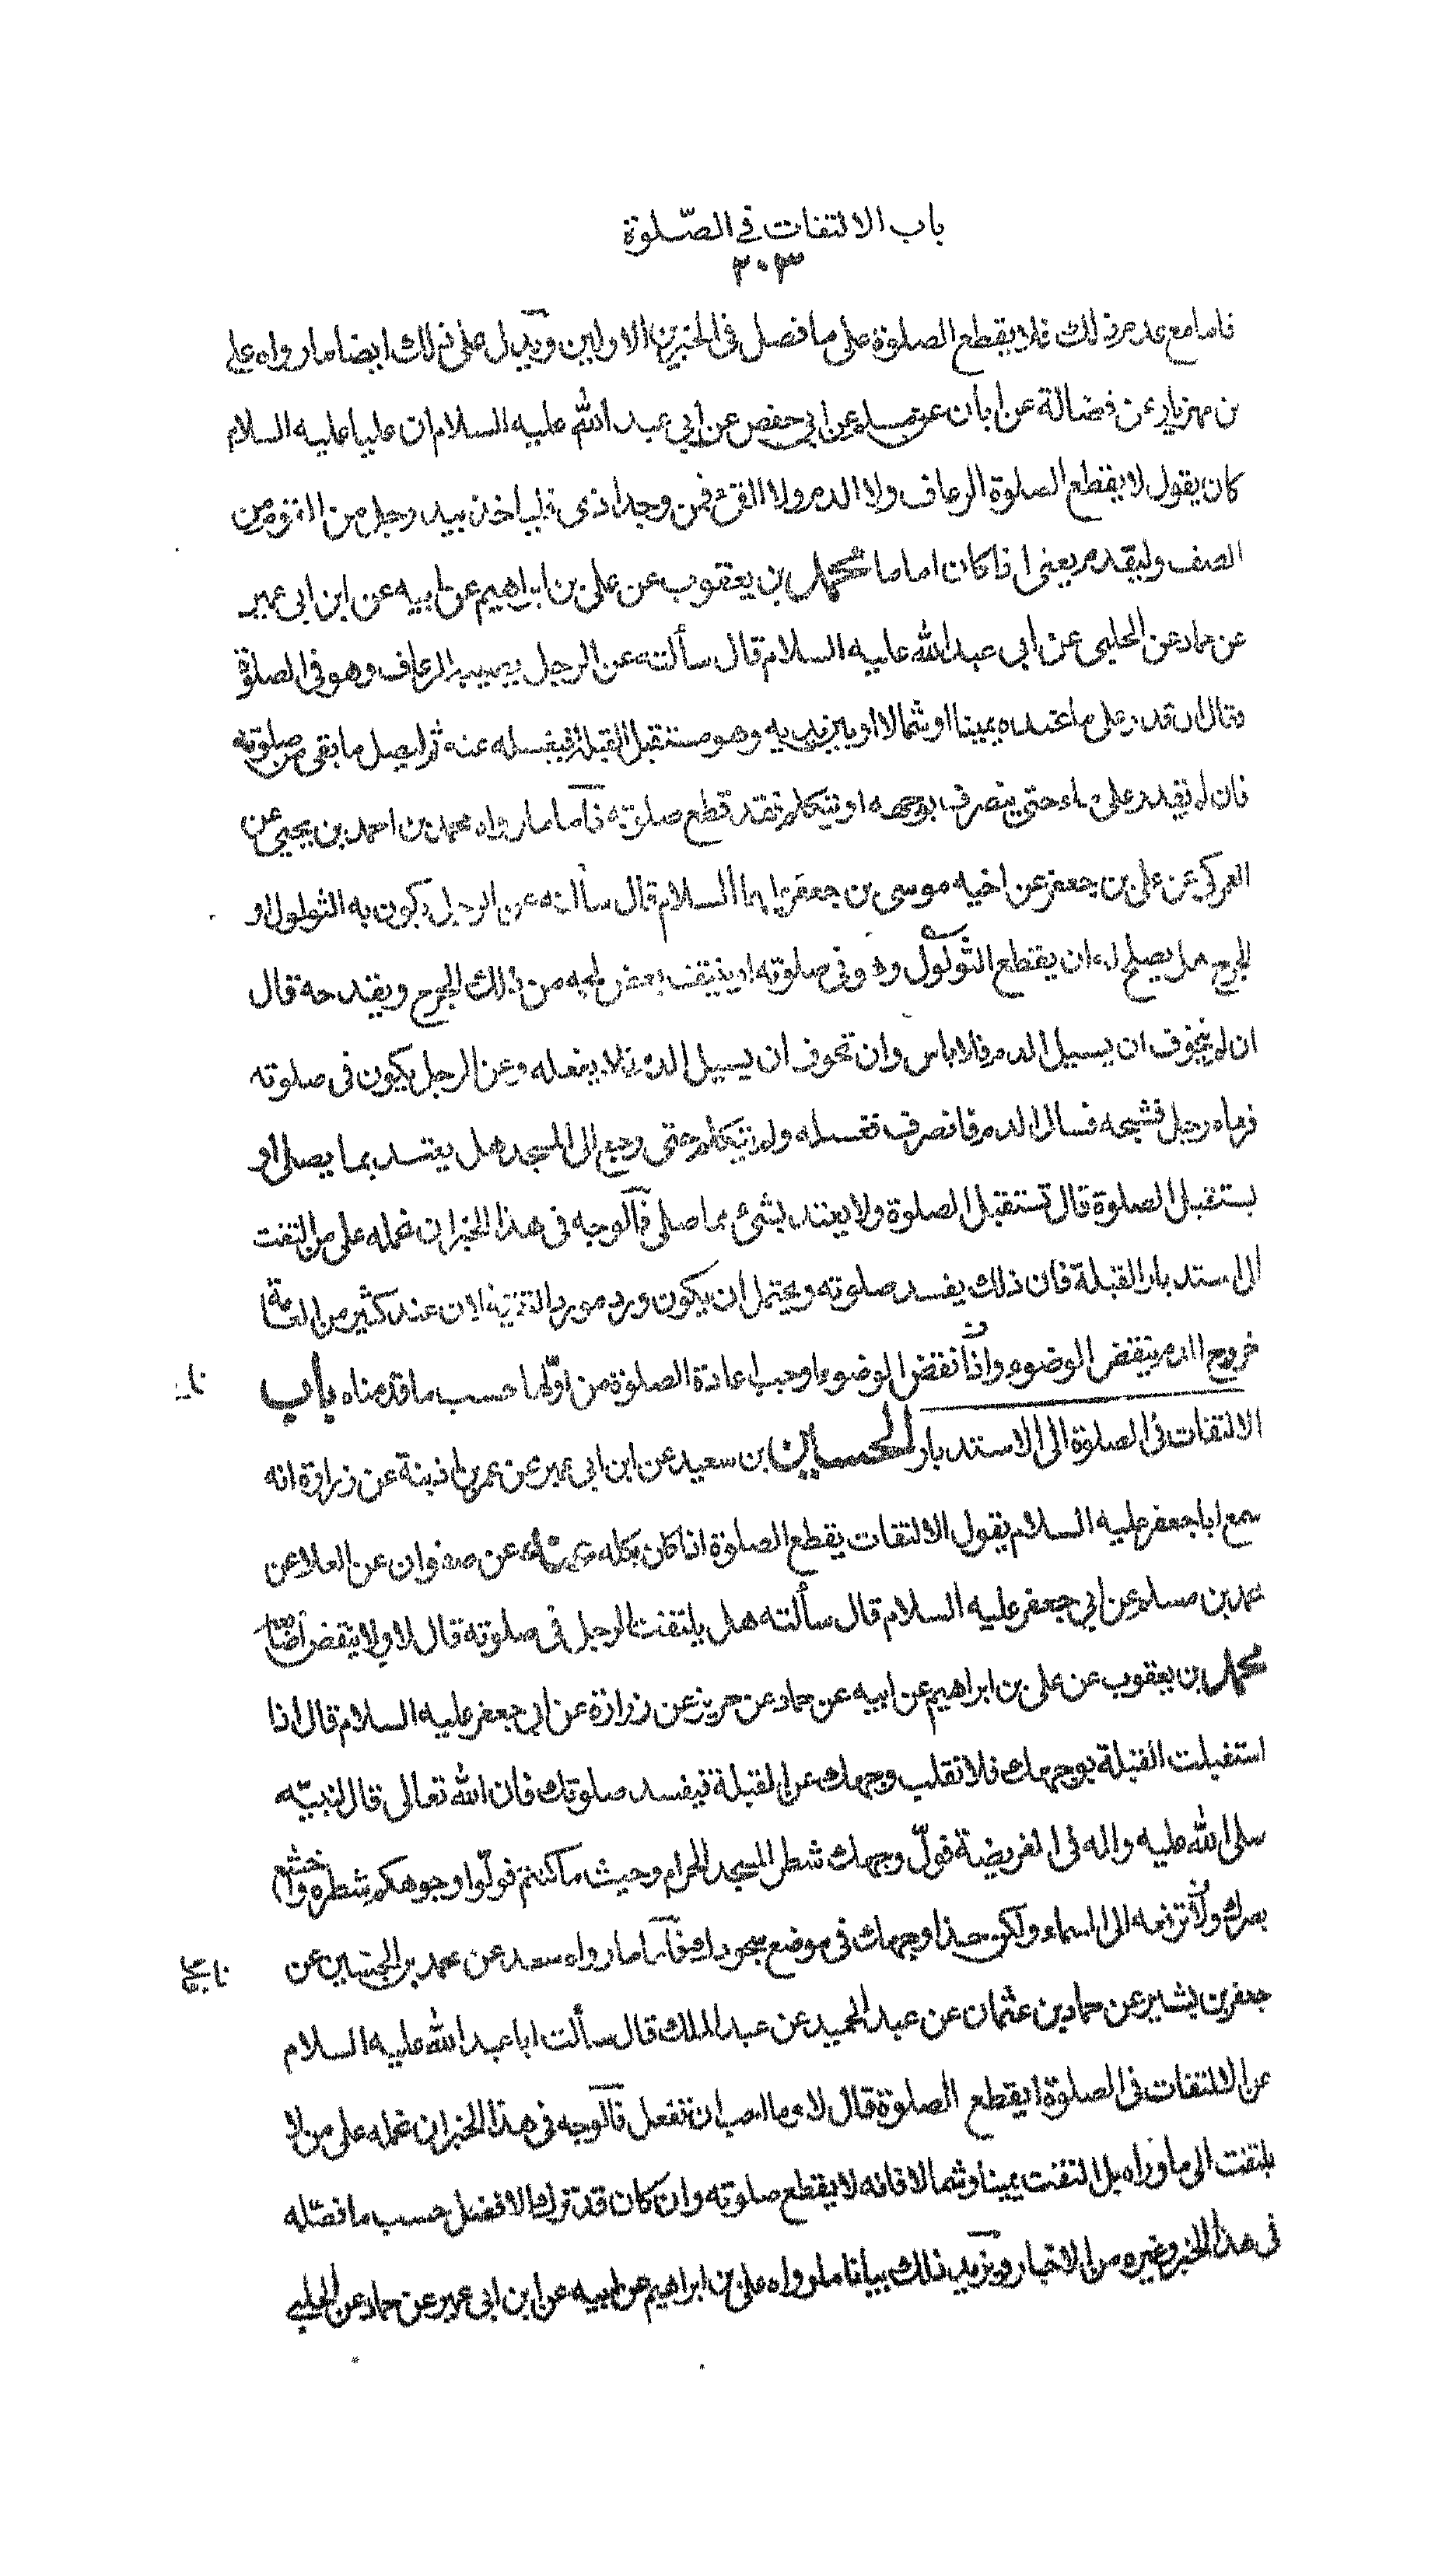 باب الالتفات في الصّلوة
٢٠٣
فاما مع عدم ذلك فلا يقطع الصلوة على ما فصل في الخبرين الاولين ويدل على ذلك ايضا ما رواه علي
بن مهزيار عن فضالة عن ابان عن سلمة عن ابي حفص عن ابي عبد الله عليه السلام ان عليا عليه السلام
كان يقول لا يقطع الصلوة الرعاف ولا الدم ولا القئ فمن وجد اذى فليأخذ بيد رجل من القوم من
الصف وليقدمه يعني اذا كان اماما محمد بن يعقوب عن علي بن ابراهيم عن ابيه عن ابن ابي عمير
عن حماد عن الحلبي عن ابي عبد الله عليه السلام قال سألته عن الرجل يصيبه الرعاف وهو في الصلوة
فقال ان قدر على ما عنده يمينا او شمالا او بين يديه وهو مستقبل القبلة فيغسله عنه ثم ليصل ما بقي من صلوته
فان لم يقدر على ماء حتى ينصرف بوجهه او يتكلم فقد قطع صلوته فاما ما رواه محمد بن احمد بن يحيى عن
العمركي عن علي بن جعفر عن اخيه موسى بن جعفر عليهما السلام قال سألته عن الرجل يكون به الثولول او
الجرح هل يصلح له ان يقطع الثولول وهو في صلوته او ينتف بعض لحمه من ذلك الجرح ويفدحه قال
ان لم يتخوف ان يسيل الدم فلا باس وان تخوف ان يسيل الدم فلا يفعله وعن الرجل يكون في صلوته
فرماه رجل فشجه فسال الدم فانصرف فغسله ولم يتكلم حتى رجع الى المسجد هل يعتد بما يصلي او
يستقبل الصلوة قال تستقبل الصلوة ولا يعتد بشئ مما صلى فالوجه في هذا الخبر ان نحمله على من التفت
الى استدبار القبلة فان ذلك يفسد صلوته ويحتمل ان يكون ورد مورد التقية لان عند كثير من العامة
خروج الدم ينقض الوضوء واذا نقض الوضوء اوجب اعادة الصلوة من اولها حسب ما قدمناه باب
الالتفات في الصلوة الى الاستدبار الحسين بن سعيد عن ابن ابي عمير عن عمر بن اذينة عن زرارة انه
سمع ابا جعفر عليه السلام يقول الالتفات يقطع الصلوة اذا كان بكله عنه عن صفوان عن العلا عن
محمد بن مسلم عن ابي جعفر عليه السلام قال سألته هل يلتفت الرجل في صلوته قال لا ولا ينقض اصابعه
محمد بن يعقوب عن علي بن ابراهيم عن ابيه عن حماد عن حريز عن زرارة عن ابي جعفر عليه السلام قال اذا
استقبلت القبلة بوجهك فلا تقلب وجهك عن القبلة فيفسد صلوتك فان الله تعالى قال لنبيّه
صلى الله عليه واله في الفريضة فولّ وجهك شطر المسجد الحرام وحيث ما كنتم فولّوا وجوهكم شطره واخشع
بصرك ولا ترفعه الى السماء ولكن حذا وجهك في موضع سجودك فاما ما رواه سعد عن محمد بن الحسين عن
جعفر بن بشير عن حماد بن عثمان عن عبد الحميد عن عبد الملك قال سألت ابا عبد الله عليه السلام
عن الالتفات في الصلوة ايقطع الصلوة قال لا وما احب ان تفعل فالوجه في هذا الخبر ان نحمله على من لا
يلتفت الى ما وراه بل التفت يمينا وشمالا فانه لا يقطع صلوته وان كان قد ترك الافضل حسب ما فصّله
في هذا الخبر وغيره من الاخبار ويزيد ذلك بيانا ما رواه علي بن ابراهيم عن ابيه عن ابن ابي عمير عن حماد عن الحلبي